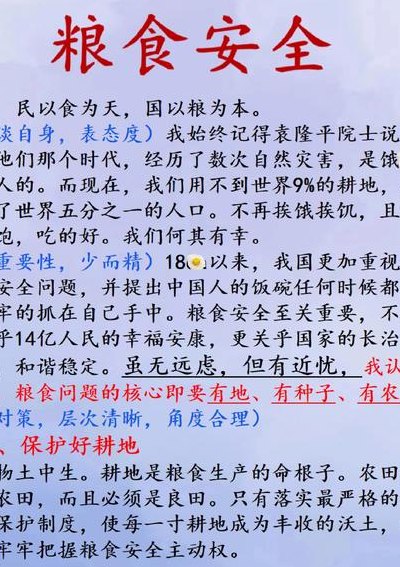 粮食安全
民以食为天，国以粮为本。
谈自身，表态度）我始终记得袁隆平院士说
他们那个时代，经历了数次自然灾害，是饿
人的。而现在，我们用不到世界9%的耕地，
了世界五分之一的人口。不再挨饿挨饥，且
饱，吃的好。我们何其有幸。
重要性，少而精）18 以来，我国更加重视
安全问题，并提出中国人的饭碗任何时候都
牢的抓在自己手中。粮食安全至关重要，不
乎14亿人民的幸福安康，更关乎国家的长治
、和谐稳定。虽无远虑，但有近忧，我认
粮食问题的核心即要有地、有种子、有农
对策，层次清晰，角度合理）
、保护好耕地
物土中生。耕地是粮食生产的命根子。农田
农田，而且必须是良田。只有落实最严格的
保护制度，使每一寸耕地成为丰收的沃土，
牢牢把握粮食安全主动权。